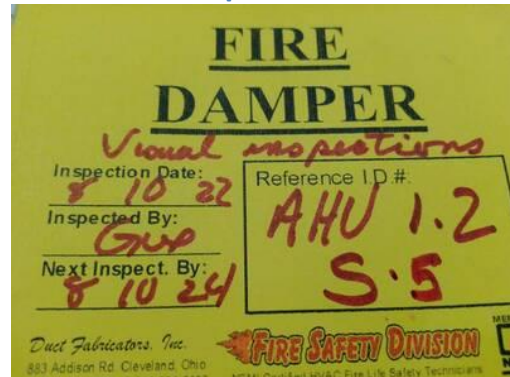 FIRE
DAMPER
Visual inspections
Inspection Date:
8 10 22
Inspected By:
Next Inspect. By:
8 10 24
Reference I.D.#:
AHU 1.2
S.5
Duct Fabricators, Inc.
883 Addison Rd. Cleveland, Ohio
FIRE SAFETY DIVISION
Certified HVAC Fire Life Safety Technicians